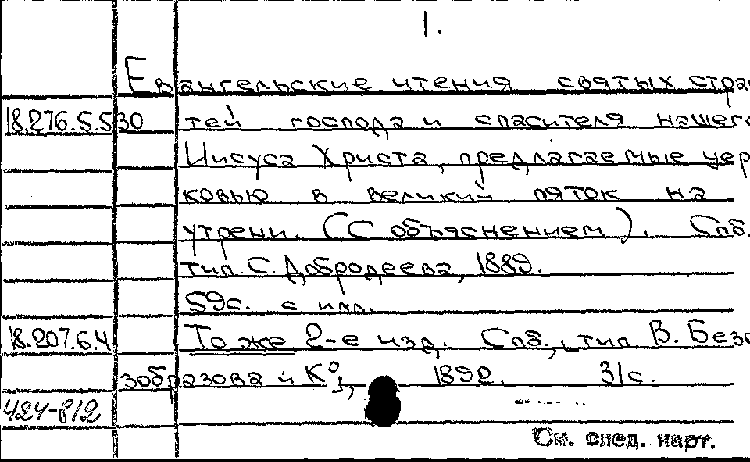 1.
Евангельские чтения святых стра
18.276.5.530 тей господа и спасителя нашего
Иисуса Христа, предлагаемые цер
ковью в великий пяток на
утрени. (С объяснением). Спб.
тип. С. Добродеева, 1889.
59с. с илл.
18.207.6.4 То же 2-е изд. Спб., тип. В. Безо
зобразова и К°, 1892. 31с.
424-812
См. след. карт.